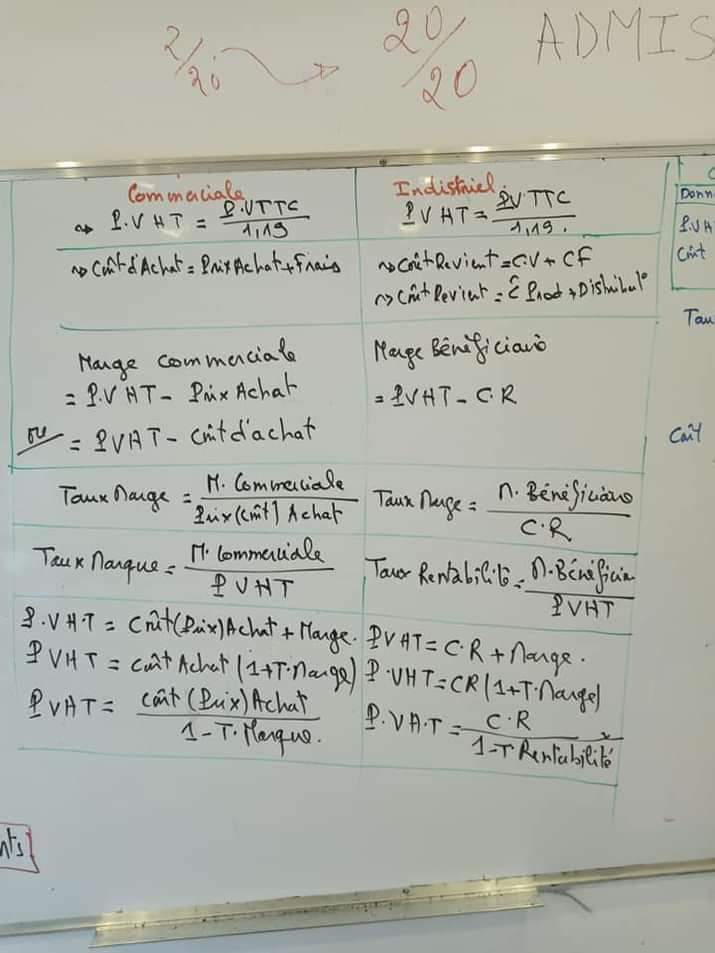 2/20 → 20/20 ADMIS
Commerciale
⇝ P.VHT = P.VTTC / 1,19
⇝ Coût d'Achat = Prix Achat + Frais
Marge commerciale
= P.VHT - Prix Achat
ou = PVHT - Coût d'achat
Taux Marge = M. Commerciale / Prix (Coût) Achat
Taux Marque = M. Commerciale / PVHT
P.VHT = Coût (Prix) Achat + Marge.
PVHT = Coût Achat (1+T.Marge)
PVHT = Coût (Prix) Achat / 1-T.Marque.
Indistriel
PVHT = PVTTC / 1,19.
⇝ Coût Revient = C.V + CF
⇝ Coût Revient = C Prod + Distribut°
Marge Bénéficiaire
= PVHT - C.R
Taux Marge = M. Bénéficiaire / C.R
Taux Rentabilité = M. Bénéficia / PVHT
PVHT = C.R + Marge.
P.VHT = CR (1+T.Marge)
P.VH.T = C.R / 1-T Rentabilité
Donn
P.VH
Coût
Tau
Coût
nts